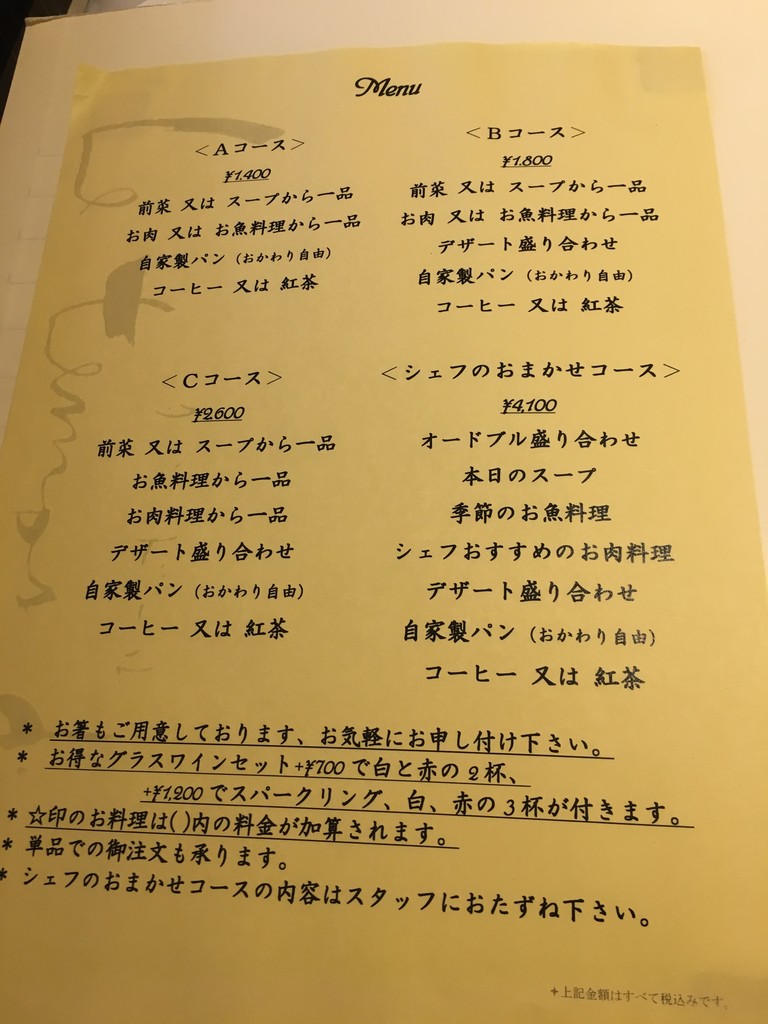 Menu
＜Aコース＞
¥1,400
前菜 又は スープから一品
お肉 又は お魚料理から一品
自家製パン（おかわり自由）
コーヒー 又は 紅茶
＜Bコース＞
¥1,800
前菜 又は スープから一品
お肉 又は お魚料理から一品
デザート盛り合わせ
自家製パン（おかわり自由）
コーヒー 又は 紅茶
＜Cコース＞
¥2,600
前菜 又は スープから一品
お魚料理から一品
お肉料理から一品
デザート盛り合わせ
自家製パン（おかわり自由）
コーヒー 又は 紅茶
＜シェフのおまかせコース＞
¥4,100
オードブル盛り合わせ
本日のスープ
季節のお魚料理
シェフおすすめのお肉料理
デザート盛り合わせ
自家製パン（おかわり自由）
コーヒー 又は 紅茶
＊ お箸もご用意しております、お気軽にお申し付け下さい。
＊ お得なグラスワインセット+¥700で白と赤の2杯、
+¥1,200でスパークリング、白、赤の3杯が付きます。
＊ ☆印のお料理は( )内の料金が加算されます。
＊ 単品での御注文も承ります。
＊ シェフのおまかせコースの内容はスタッフにおたずね下さい。
＋上記金額はすべて税込みです。